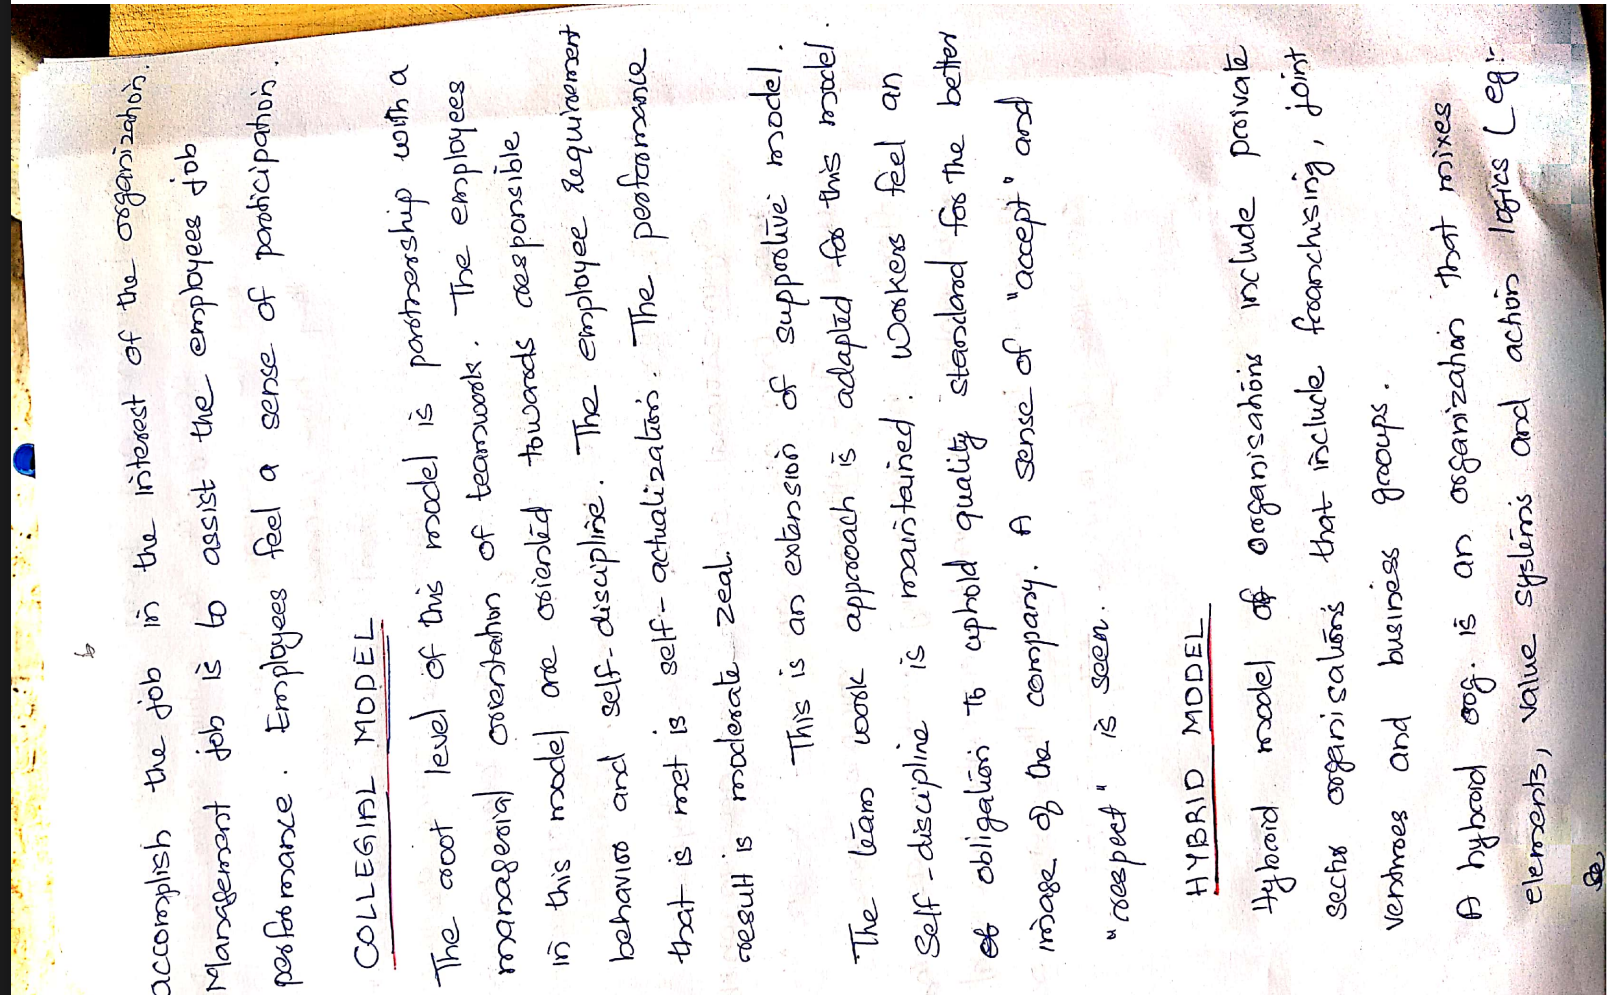 accomplish the job in the interest of the organization.
Management job is to assist the employees job
performance. Employees feel a sense of participation.
COLLEGIAL MODEL
The root level of this model is partnership with a
managerial orientation of teamwork. The employees
in this model are oriented towards responsible
behavior and self-discipline. The employee requirement
that is met is self-actualization. The performance
result is moderate zeal.
This is an extension of supportive model.
The team work approach is adapted for this model.
Self-discipline is maintained. Workers feel an
of obligation to uphold quality standard for the better
image of the company. A sense of "accept" and
"respect" is seen.
HYBRID MODEL
Hybrid model of organisations include private
sector organisations that include franchising, joint
ventures and business groups.
A hybrid org. is an organization that mixes
elements, value systems and action logics (eg:-